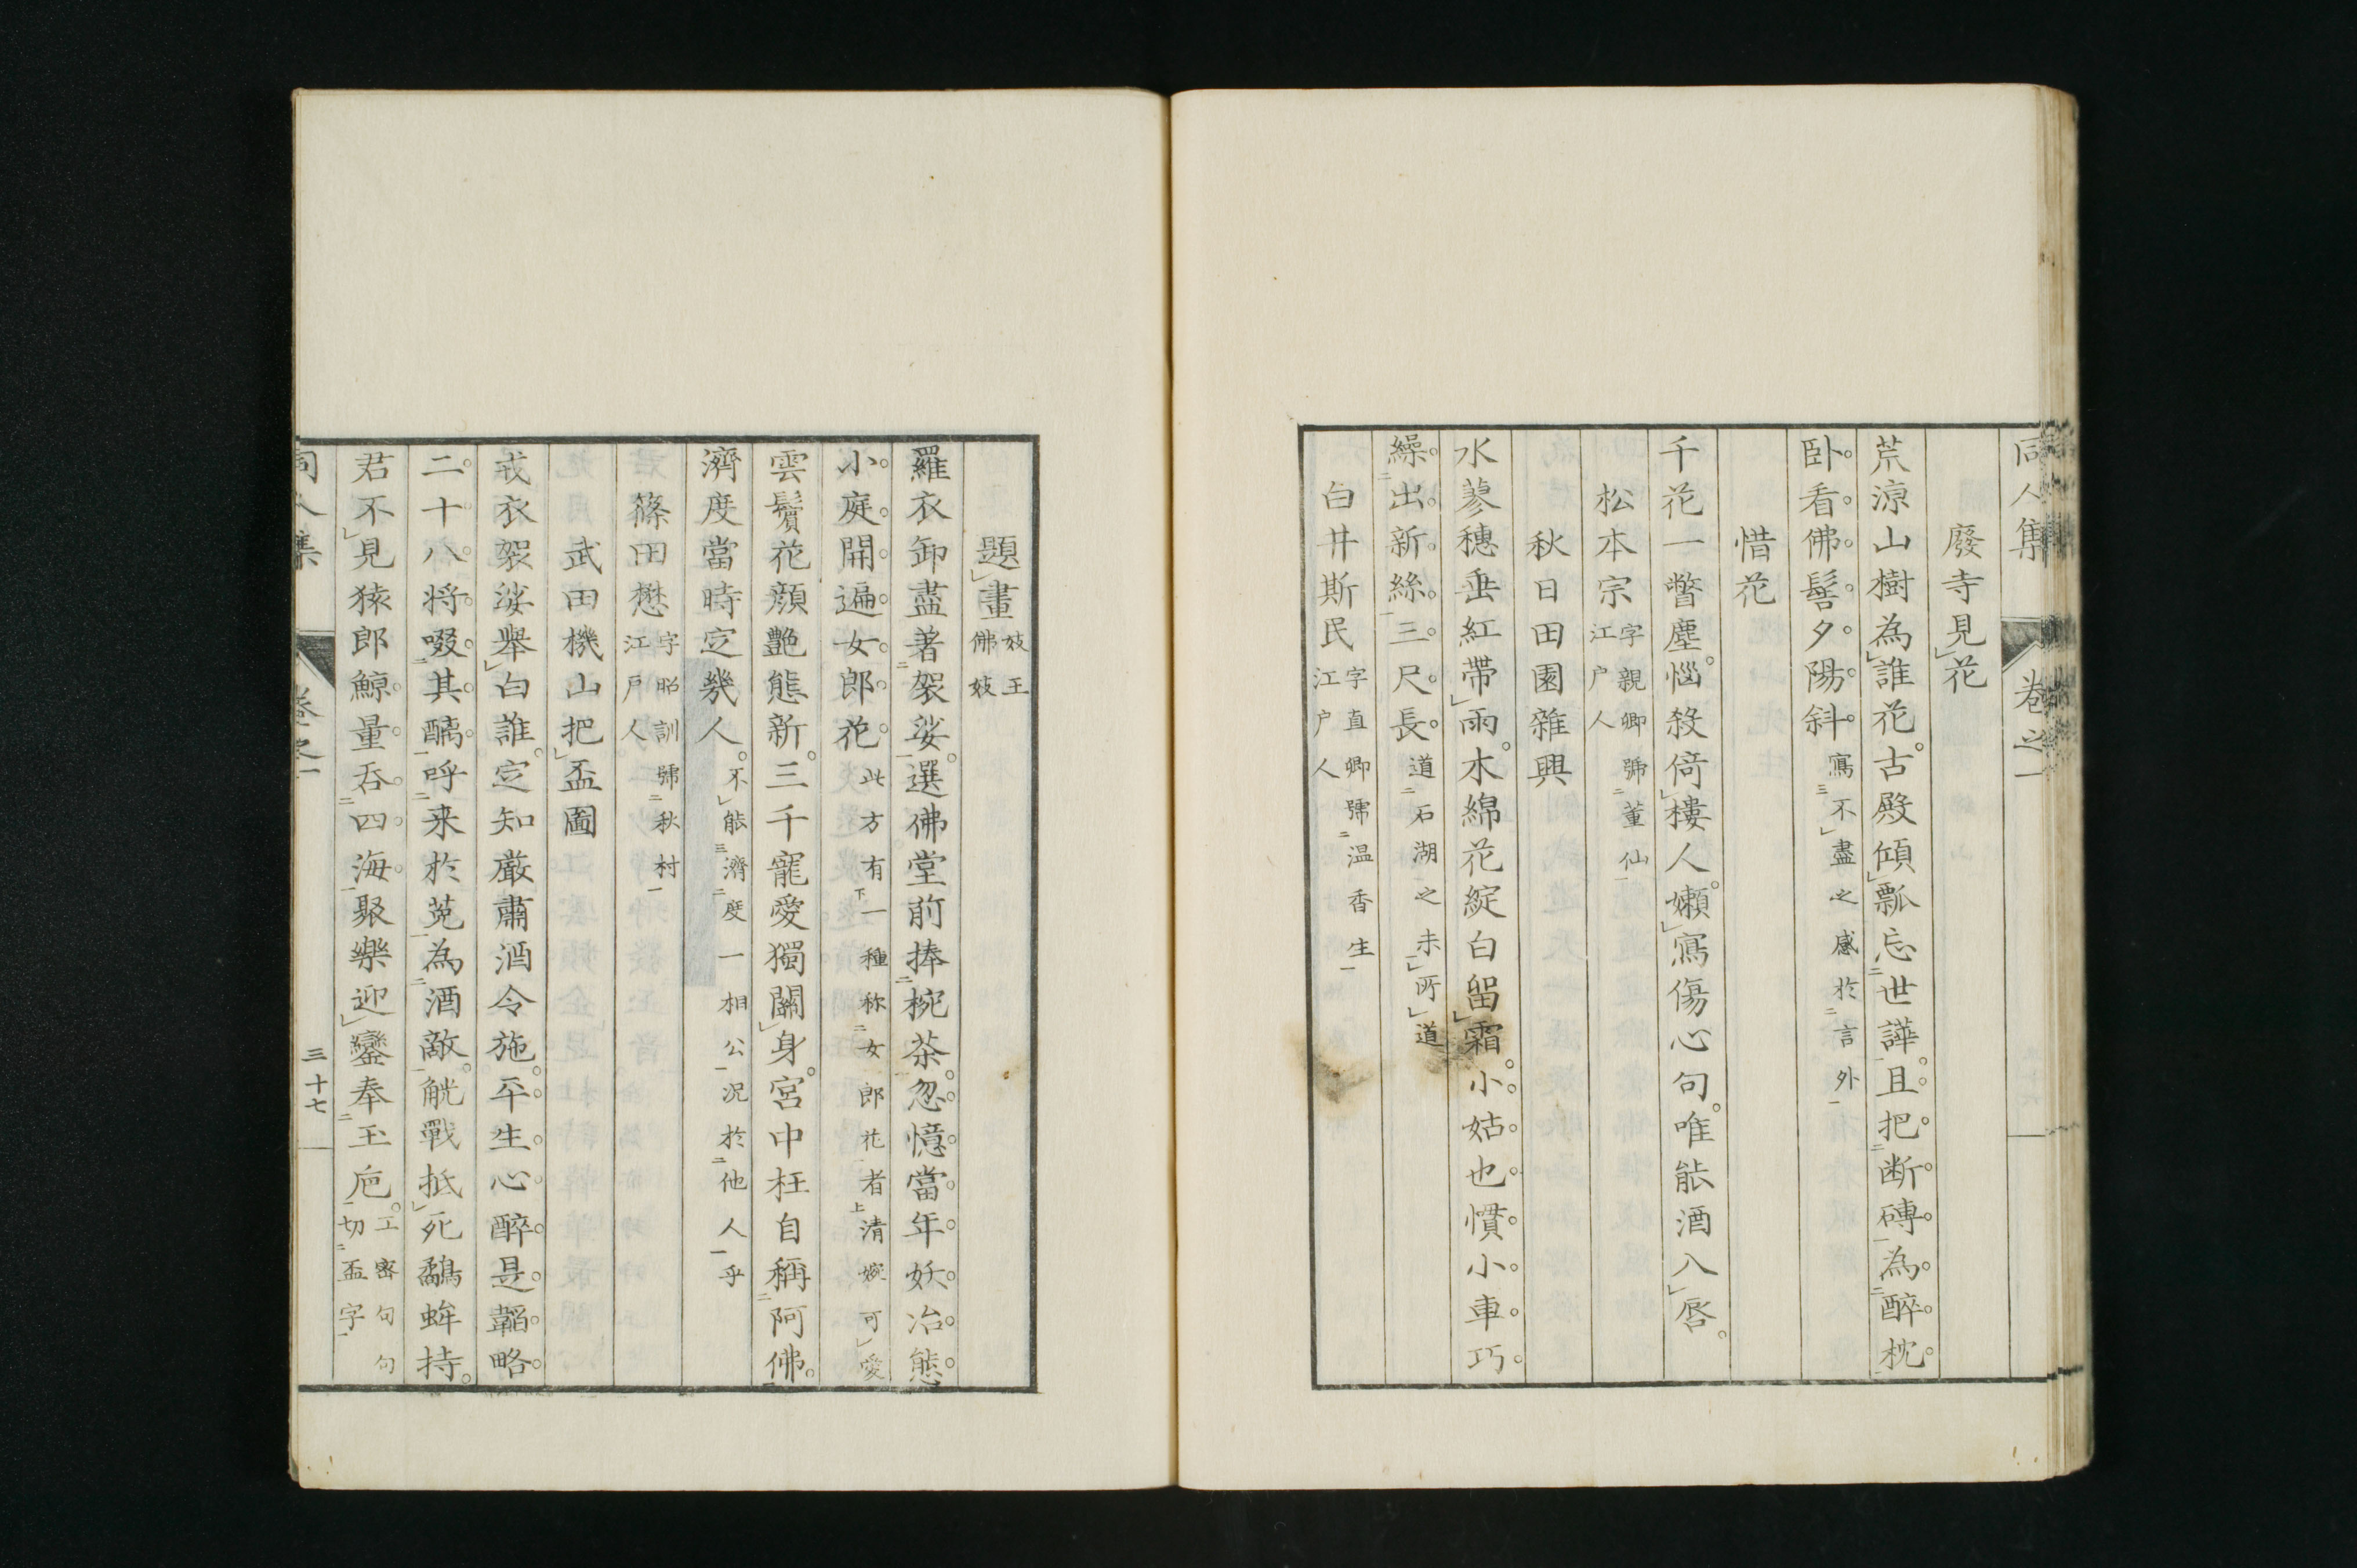 同人集 卷之一
廢寺見花
荒涼山樹為誰花。古殿傾瓢忘世譁。且把断磚為醉枕
卧看佛髻夕陽斜 寫不盡之感於言外
惜花
千花一瞥塵。惱殺倚樓人。嬾寫傷心句。唯能酒入唇。
松本宗 字親卿號董仙
江户人
秋日田園雜興
水蓼穗垂紅帶雨。木綿花綻白留霜。小姑也慣小車巧
繰出新絲三尺長 道石湖之未所道
白井斯民 字直卿號温香生
江户人
題畫 妓王
佛妓
羅衣卸盡著袈裟。選佛堂前捧椀茶。忽憶當年妖冶態
小庭開遍女郎花 此方有一種称女郎花者清婉可愛
雲鬢花顔艶態新。三千寵愛獨關身。宮中枉自稱阿佛。
濟度當時定幾人。不能濟度一相公况於他人乎
篠田懋 字昭訓號秋村
江戸人
武田機山把盃圖
戎衣袈裟舉白誰。定知厳肅酒令施。平生心醉是韜略
二十八将啜其醨 呼来於菟為酒敵。觥戰抵死鷸蚌持。
君不見猿郎鯨量呑四海聚樂迎鑾奉玉巵。工密句句
切盃字
同人集 卷之一 三十七